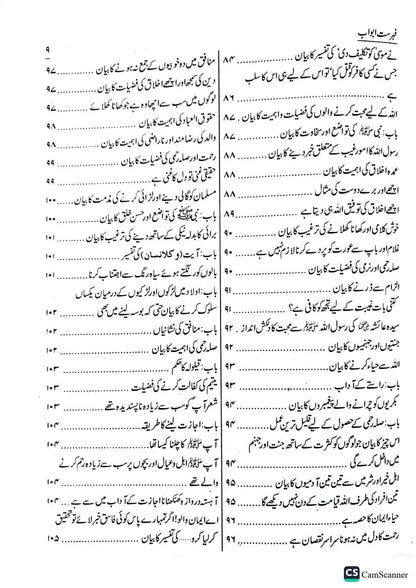 فہرست ابواب
۹
نے موسیٰ کو تکلیف دی‘‘ کی تفسیر کا بیان ........ ۸۴
جس نے کسی کافر کو قتل کیا‘ تو اس کے لیے ہی اس کا سلب
ہے ........ ۸۶
اللہ کے لیے محبت کرنے والوں کی فضیلت و اہمیت کا بیان . ۸۷
باب: نبی ﷺ کی تواضع اور سخاوت کا بیان ........ ۸۷
رسول اللہ کا امور غیب کے متعلق خبر دینے کا بیان ........ ۸۸
عمدہ اخلاق کی اہمیت کا بیان ........ ۸۸
اچھے اور برے دوست کی مثال ........ ۸۸
اچھے اخلاق کی توفیق اللہ ہی دیتا ہے ........ ۸۹
خوش کلامی اور کھانا کھلانے کی ترغیب کا بیان ........ ۹۰
غلام اور باپ سے عورت کو پردے کرنا لازم نہیں ہے ........ ۹۰
صلہ رحمی اور نرمی کی فضیلت کا بیان ........ ۹۰
الزام سے ڈرنے کا بیان ........ ۹۱
کتنی بات غیبت کے لیے تجھ کو کافی ہے؟ ........ ۹۱
سیدہ عائشہ کی رسول اللہ ﷺ سے محبت کا دلکش انداز . ۹۲
جنتیوں اور جہنمیوں کا بیان ........ ۹۲
اللہ سے حیاء کرنے کا بیان ........ ۹۳
باب: راستے کے آداب ........ ۹۳
بکریوں کو چرانے والے پیغمبروں کا بیان ........ ۹۴
باب: صلہ رحمی کے حصول کے لیے قلیل ترین عمل ........ ۹۴
اس چیز کا بیان جو لوگوں کو کثرت کے ساتھ جنت اور جہنم
میں داخل کرے گی ........ ۹۴
اہل خیر اور شر میں سے تین تین آدمیوں کا بیان ........ ۹۵
تین افراد کی طرف اللہ قیامت کے دن نہیں دیکھے گا ........ ۹۵
حیاء ایمان کا حصہ ہے ........ ۹۶
رحمت کا دل میں نہ ہونا سراسر نقصان ہے ........ ۹۶
منافق میں دو خوبیوں کے جمع نہ ہونے کا بیان ........ ۹۷
دین کی سمجھ اور اچھے اخلاق کی فضیلت کا بیان ........ ۹۷
لوگوں میں سب سے اچھا وہ ہے جو کھانا کھلائے ........ ۹۷
حقوق العباد کی اہمیت کا بیان ........ ۹۸
والد کی رضا مند اور ناراضی کی اہمیت کا بیان ........ ۹۸
رحمت اور صلہ رحمی کی فضیلت کا بیان ........ ۹۹
حقیقی غنی تو دل کا غنی ہے ........ ۹۹
مسلمان کو گالی دینے اور لڑائی کرنے کی مذمت کا بیان ........ ۱۰۰
باب: نبی ﷺ کی تواضع اور حسن خلق کا بیان ........ ۱۰۰
برائی کا بدلہ نیکی کے ساتھ دینے کی ترغیب کا بیان ........ ۱۰۱
باب: آیت کی تفسیر ........ ۱۰۱
بالوں کو رنگتے ہوئے سیاہ رنگ سے اجتناب کرنا ........ ۱۰۱
باب: اولاد میں لڑکوں اور لڑکیوں کے درمیان یکساں
سلوک کرنے کا بیان حتیٰ کہ بوسہ لینے میں بھی ........ ۱۰۲
باب: منافق کی نشانیاں ........ ۱۰۲
صلہ رحمی کی اہمیت کا بیان ........ ۱۰۲
باب: قیلولہ کا حکم ........ ۱۰۳
یتیم کی کفالت کرنے کی فضیلت ........ ۱۰۳
شعر آپ کو سب سے زیادہ ناپسندیدہ تھے ........ ۱۰۳
باب: اجازت لینے کا طریقہ ........ ۱۰۴
آپ ﷺ کا چلنا کیسا تھا ........ ۱۰۴
آپ ﷺ اہل و عیال اور بچوں پر سب سے زیادہ رحم کرنے
والے تھے ........ ۱۰۴
آہستہ دروازہ کھٹکھٹانا اجازت کے آداب میں سے ہے ... ۱۰۴
اے ایمان والو! اگر تمہارے پاس کوئی فاسق خبر لائے تو تحقیق
کر لیا کرو ........ کی تفسیر کا بیان ........ ۱۰۵
CS CamScanner